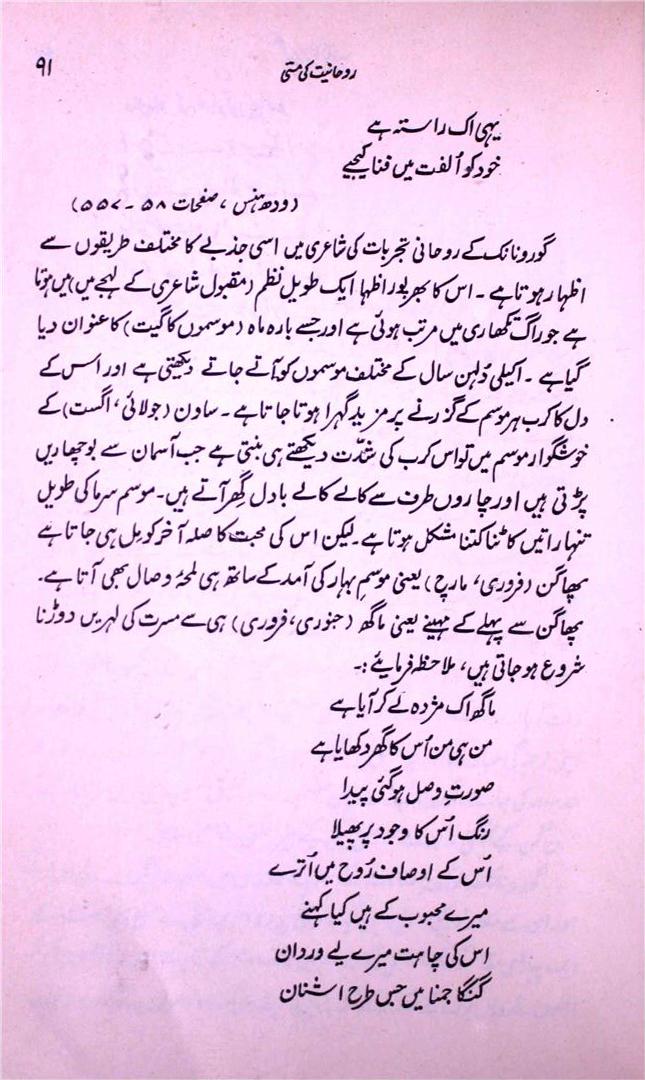 روحانیت کی مستی ۹۱
یہی اک راستہ ہے
خود کو اُلفت میں فنا کیجیے
(ودھنس، صفحات ۵۸ - ۵۵۷)
گورونانک کے روحانی تجربات کی شاعری میں اسی جذبے کا مختلف طریقوں سے
اظہار ہوتا ہے۔ اس کا بھرپور اظہا ایک طویل نظم (مقبول شاعری کے لہجے میں) میں ہوتا
ہے جو راگ تکھاری میں مرتب ہوئی ہے اور جسے بارہ ماہ (موسموں کا گیت) کا عنوان دیا
گیا ہے۔ اکیلی دُلہن سال کے مختلف موسموں کو آتے جاتے دیکھتی ہے اور اس کے
دل کا کرب ہر موسم کے گزرنے پر مزید گہرا ہوتا جاتا ہے۔ ساون (جولائی، اگست) کے
خوشگوار موسم میں تو اس کرب کی شدّت دیکھتے ہی بنتی ہے جب آسمان سے بوچھاریں
پڑتی ہیں اور چاروں طرف سے کالے کالے بادل گھر آتے ہیں۔ موسم سرما کی طویل
تنہا راتیں کاٹنا کتنا مشکل ہوتا ہے۔ لیکن اس کی محبت کا صلہ آخر کو مل ہی جاتا ہے
پھاگن (فروری، مارچ) یعنی موسمِ بہار کی آمد کے ساتھ ہی لمحۂ وصال بھی آتا ہے۔
پھاگن سے پہلے کے مہینے یعنی ماگھ (جنوری، فروری) ہی سے مسرت کی لہریں دوڑنا
شروع ہو جاتی ہیں، ملاحظہ فرمایئے :۔
ماگھ اک مژدہ لے کر آیا ہے
من ہی من اُس کا گھر دکھایا ہے
صورتِ وصل ہوگئی پیدا
رنگ اُس کا وجود پر پھیلا
اُس کے اوصاف رُوح میں اُترے
میرے محبوب کے ہیں کیا کہنے
اس کی چاہت میرے لیے وردان
گنگا جمنا میں جس طرح اشنان